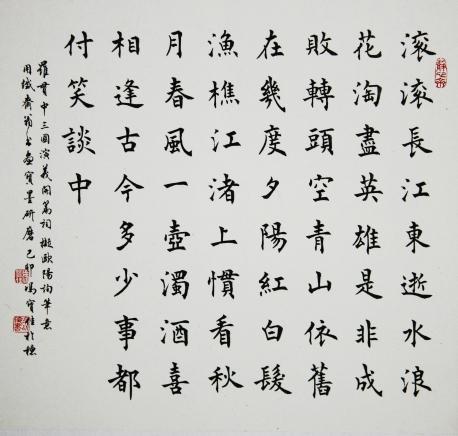 滚滚長江東逝水浪
花淘盡英雄是非成
敗轉頭空青山依舊
在幾度夕陽紅白髮
漁樵江渚上慣看秋
月春風一壺濁酒喜
相逢古今多少事都
付笑談中
羅貫中三國演義開篇詞擬歐陽詢筆意
用齋翁書畫寶墨研磨己卯馮寶佳於穗